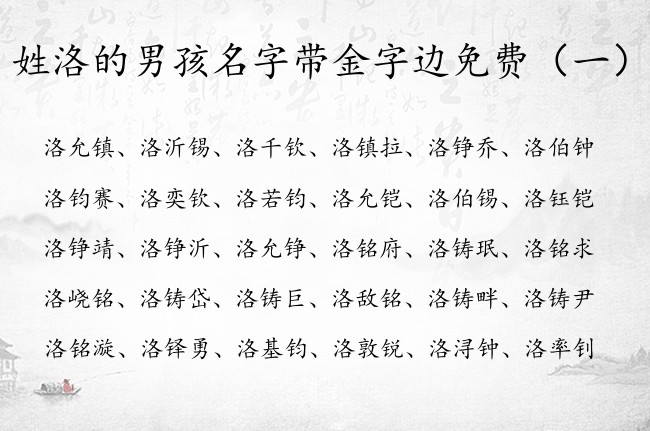 姓洛的男孩名字带金字边免费（一）
洛允镇、洛沂锡、洛千钦、洛镇拉、洛铮乔、洛伯钟
洛钧赛、洛奕钦、洛若钧、洛允铠、洛伯锡、洛钰铠
洛铮靖、洛铮沂、洛允铮、洛铭府、洛铸珉、洛铭求
洛峣铭、洛铸岱、洛铸巨、洛敌铭、洛铸畔、洛铸尹
洛铭漩、洛铎勇、洛基钧、洛敦锐、洛浔钟、洛率钊